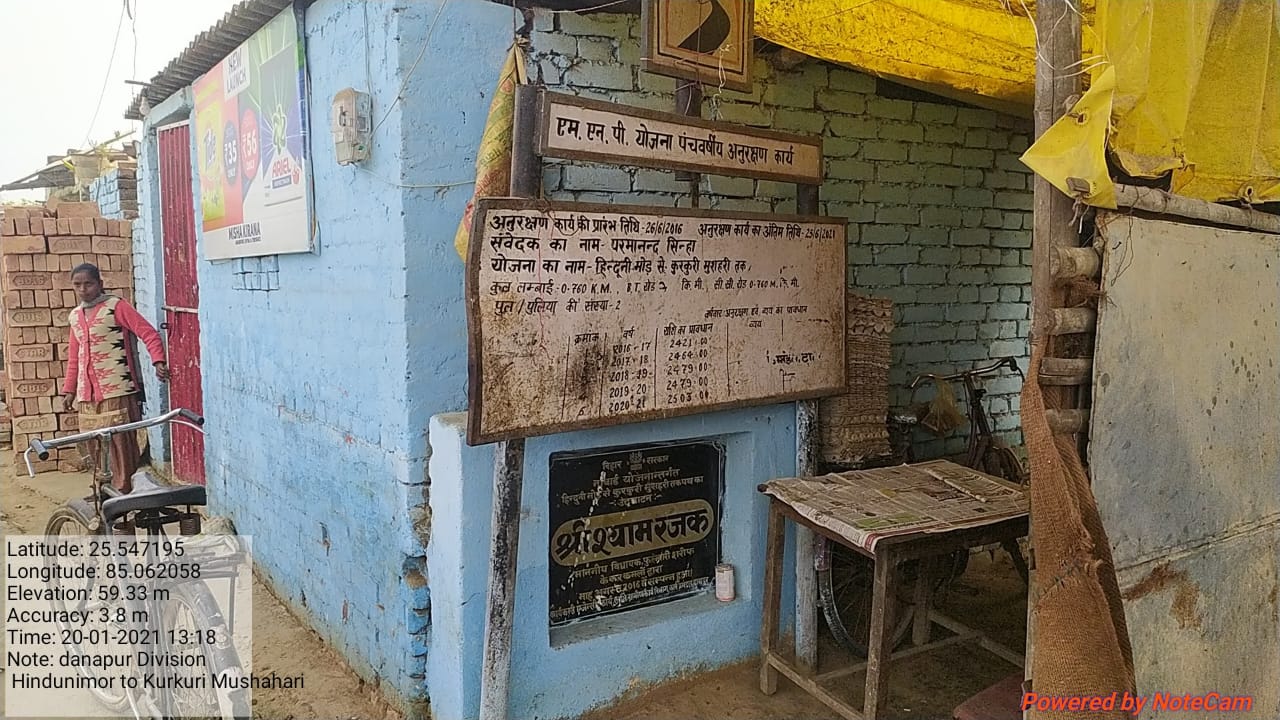 NEW
LAUNCH
₹35
₹56
ARIEL
MISHA KIRANA
एम. एन. पी. योजना पंचवर्षीय अनुरक्षण कार्य
अनुरक्षण कार्य की प्रारंभ तिथि-26/6/2016 अनुरक्षण कार्य का अंतिम तिथि-25/6/2021
संवेदक का नाम- परमानन्द सिन्हा
योजना का नाम- हिन्दुनी मोड़ से कुरकुरी मुशहरी तक,
कुल लम्बाई-0-760 K.M. B.T. रोड कि.मी. सी.सी. रोड 0-760 M. कि.मी.
पुल / पुलिया की संख्या-2
वर्षवार अनुरक्षण हेतु व्यय का प्रावधान
क्रमांक वर्ष राशि का प्रावधान व्यय
2016-17 2421.00
2017-18 2464.00
2018-19 2479.00
2019-20 2479.00
5 2020-21 2503.00
बिहार सरकार
नाबार्ड योजनान्तर्गत
हिन्दुनी मोड़ से कुरकुरी मुशहरी तक पथ का
-: उद्घाटन :-
श्री श्याम रजक
माननीय विधायक, फुलवारी शरीफ
के कर कमलों द्वारा
माह अगस्त 2016 में सम्पन्न हुआ।
Latitude: 25.547195
Longitude: 85.062058
Elevation: 59.33 m
Accuracy: 3.8 m
Time: 20-01-2021 13:18
Note: danapur Division
Hindunimor to Kurkuri Mushahari
Powered by NoteCam